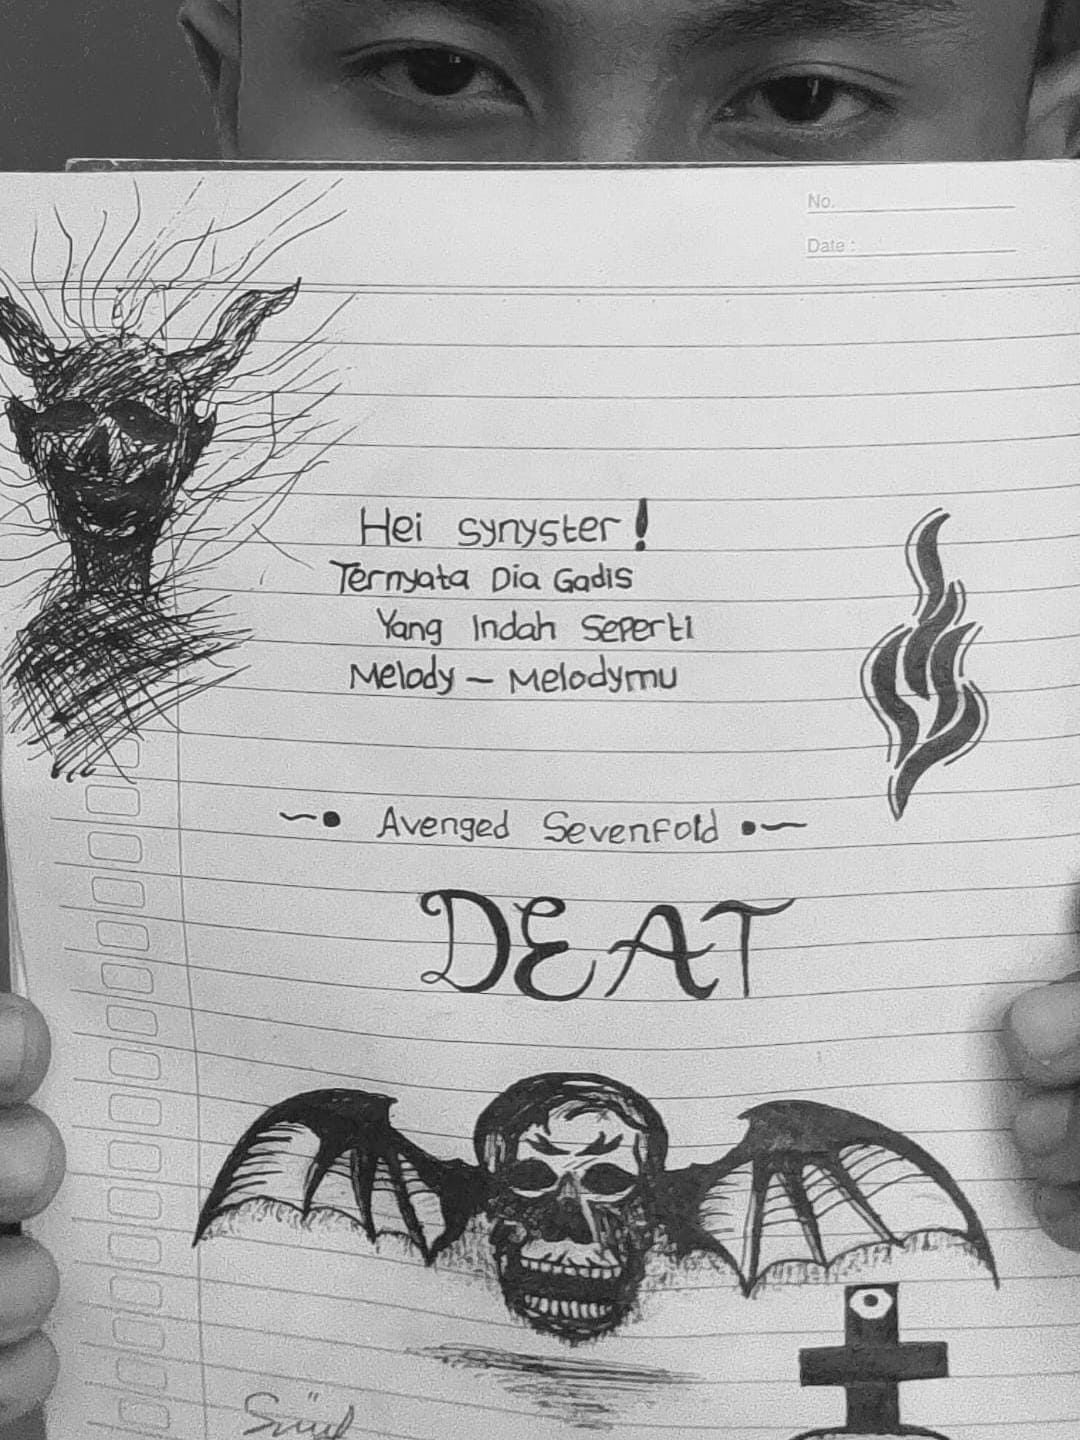 No.
Date :
Hei synyster!
Ternyata Dia Gadis
Yang Indah Seperti
Melody – Melodymu
~• Avenged Sevenfold •~
DEAT